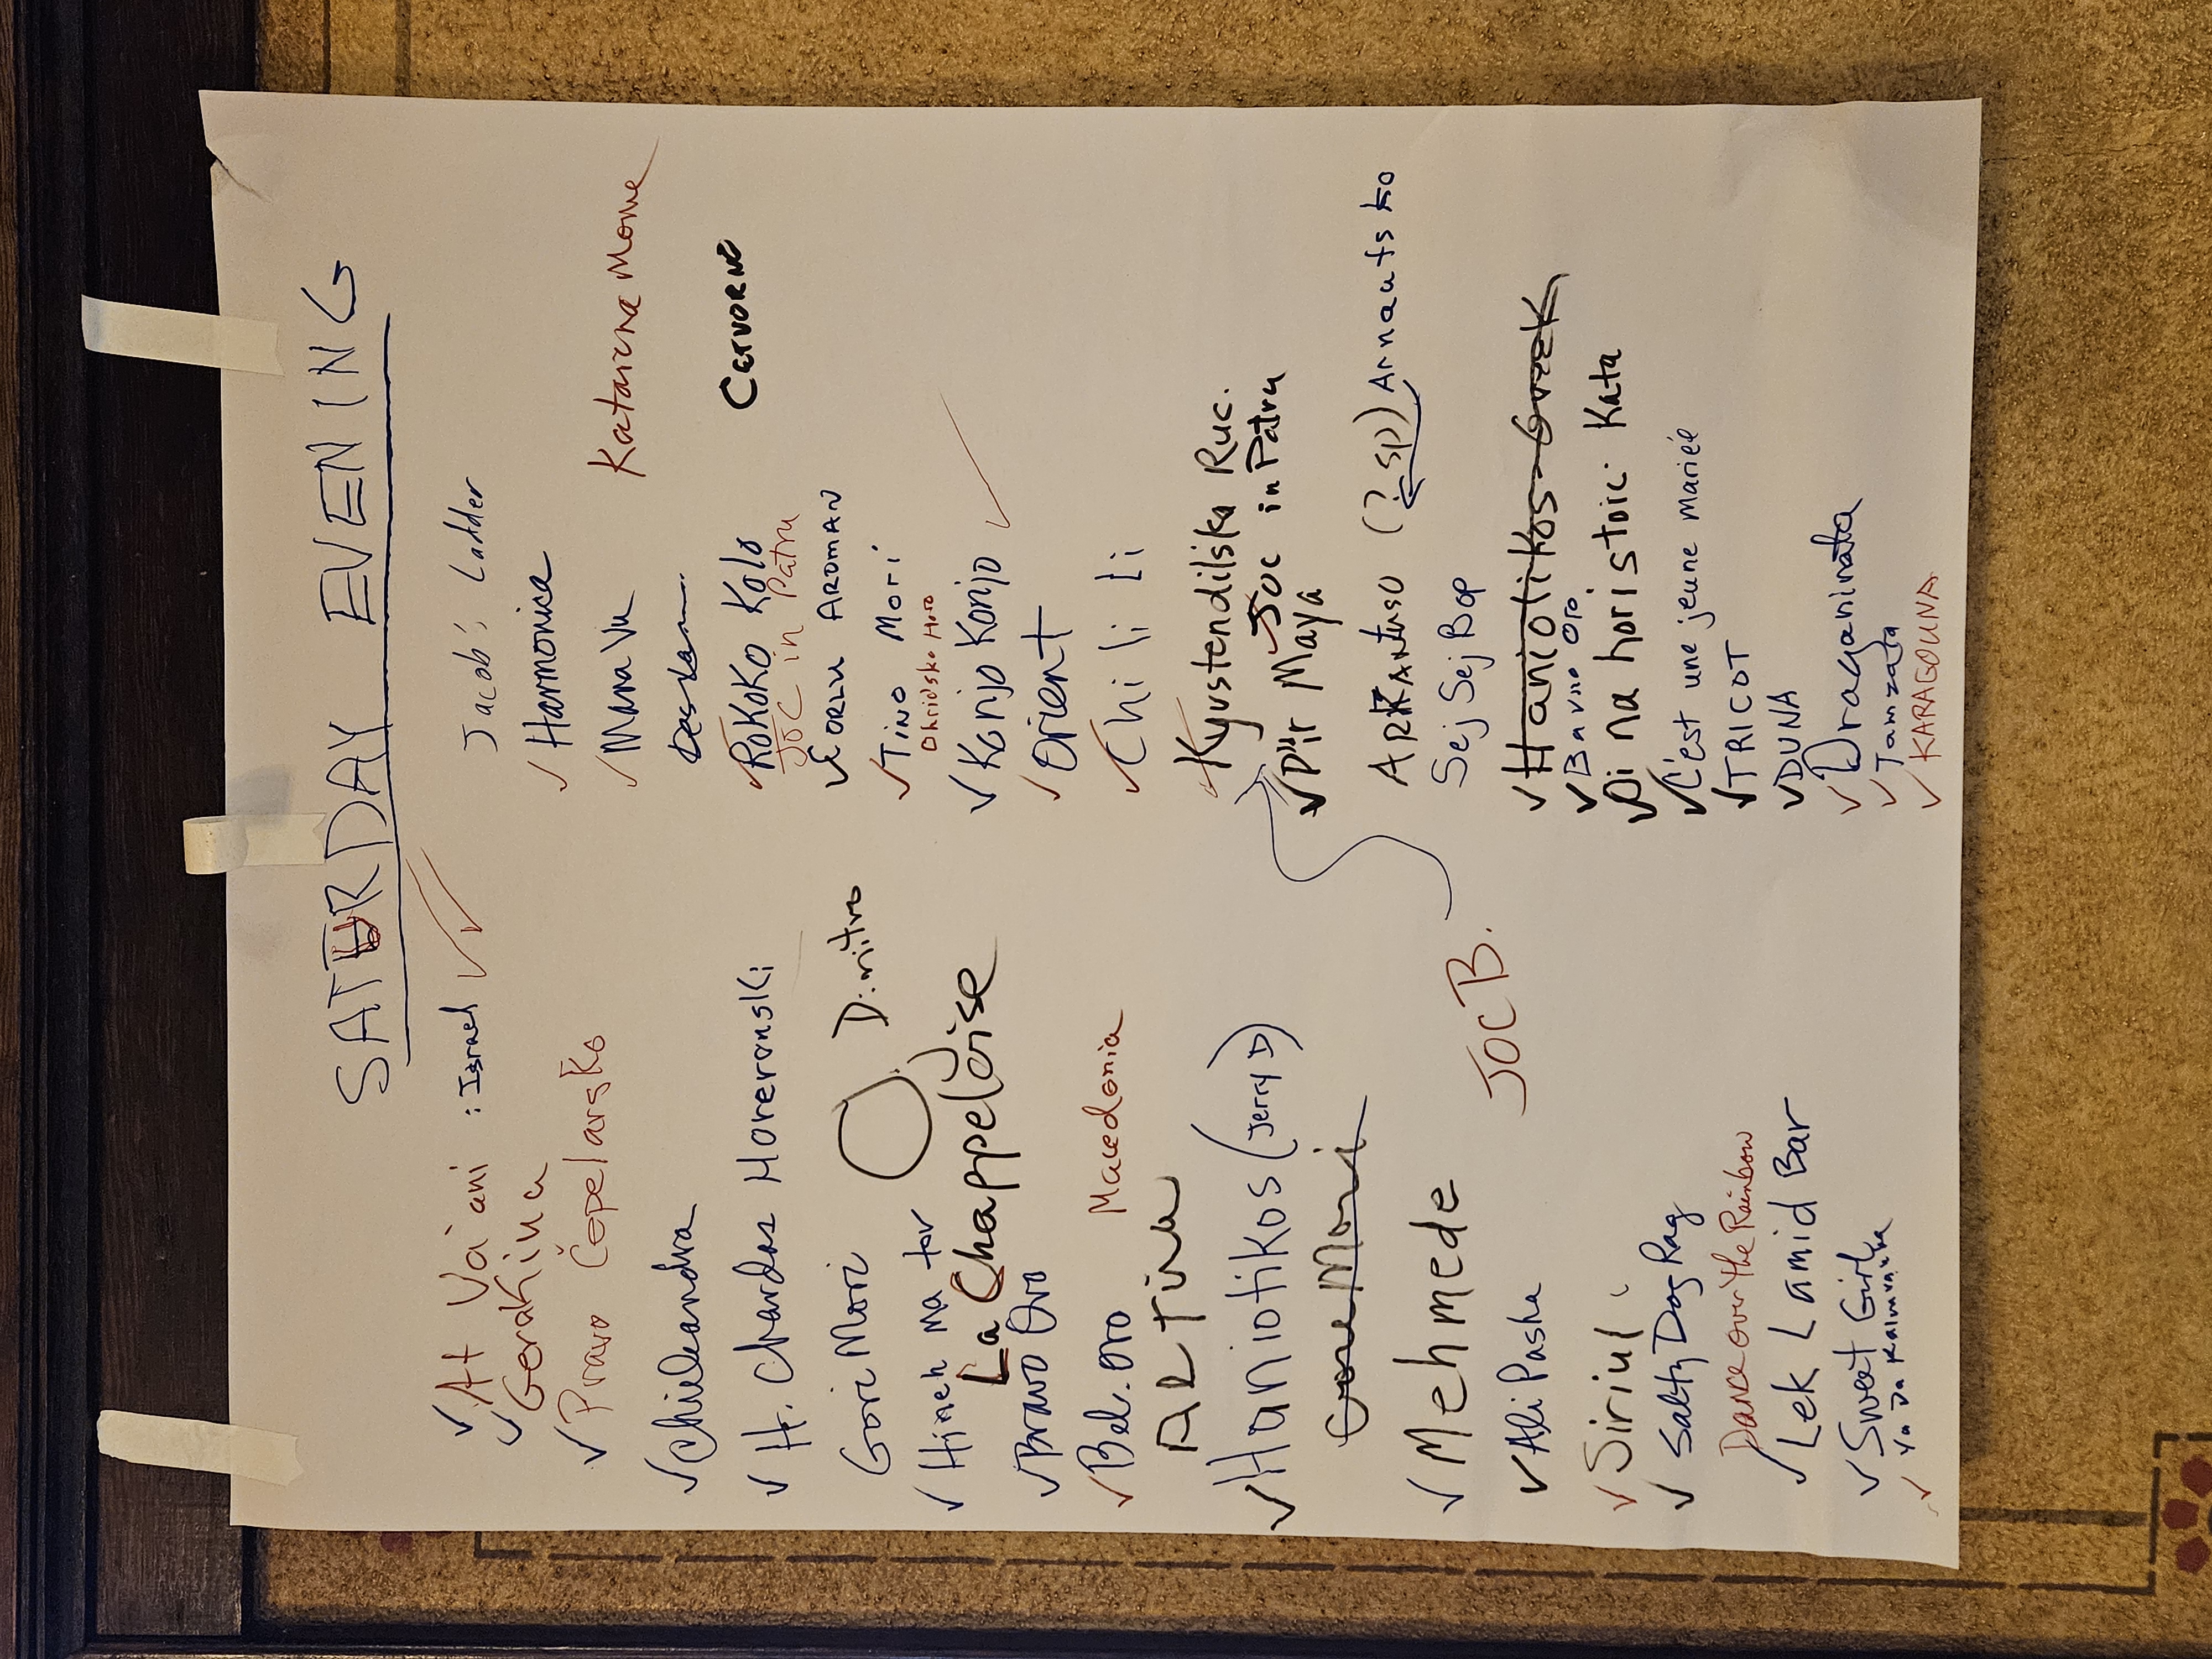 SATURDAY EVENING
At Va'ani : Israel
Gerakina
Pravo Čopelarsko
Chilleandra
Hr. Chardas Horeronski
Gori Mori
Dimitro
Hineh Ma tov
La Chappeloise
Bravo Oro
Bel. oro Macedonia
ARTiru
Haniotikos (Jerry D)
Gore Mori
Mehmede
JOC B.
Ali Pasha
Siriul
Salty Dog Rag
Dance over the Rainbow
Lek Lamid Bar
Sweet Girl
Ya Da Kalinushka
Jacob's Ladder
Harmonica
Mana Vu
Katarina Mome
RoKoKo Kolo
JOC in Patru
CETVORNO
CORLU AROMAN
Tino Mori
Ohridsko Horo
Konjo Konjo
Orient
Chi li li
Kyustendilska Ruc.
Joc in Patru
Pir Maya
ARKANTUSO (? sp) Arnautsko
Sej Sej Bop
Haniotikos - Greek
Bavno Oro
Pinahoristoic Kata
C'est une jeune mariée
TRICOT
DUNA
Draganinata
Tamzara
KARAGOUNA